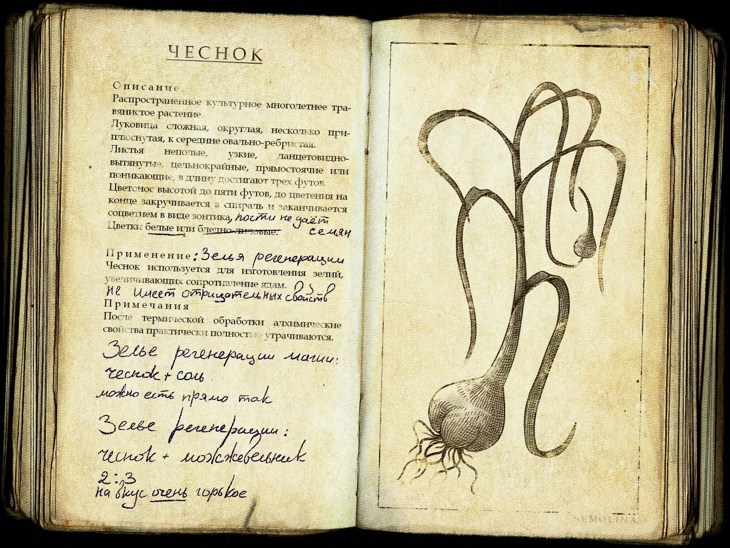 ЧЕСНОК
Описание
Распространенное культурное многолетнее тра-
вянистое растение
Луковица сложная, округлая, несколько при-
плюснутая, к середине овально-ребристая.
Листья неполые, узкие, ланцетовидно-
вытянутые, цельнокрайные, прямостоячие или
поникающие, в длину достигают трех футов.
Цветонос высотой до пяти футов, до цветения на
конце закручивается в спираль и заканчивается
соцветием в виде зонтика, почти не даёт
Цветки белые или бледно-лиловые. семян
Применение: Зелья регенерации
Чеснок используется для изготовления зелий,
увеличивающих сопротивление ядам.
не имеет отрицательных свойств
Примечания
После термической обработки алхимические
свойства практически полностью утрачиваются.
Зелье регенерации магии:
чеснок + соль
можно есть прямо так
Зелье регенерации:
чеснок + можжевельник
2:3
на вкус очень горькое
SEMOLINA